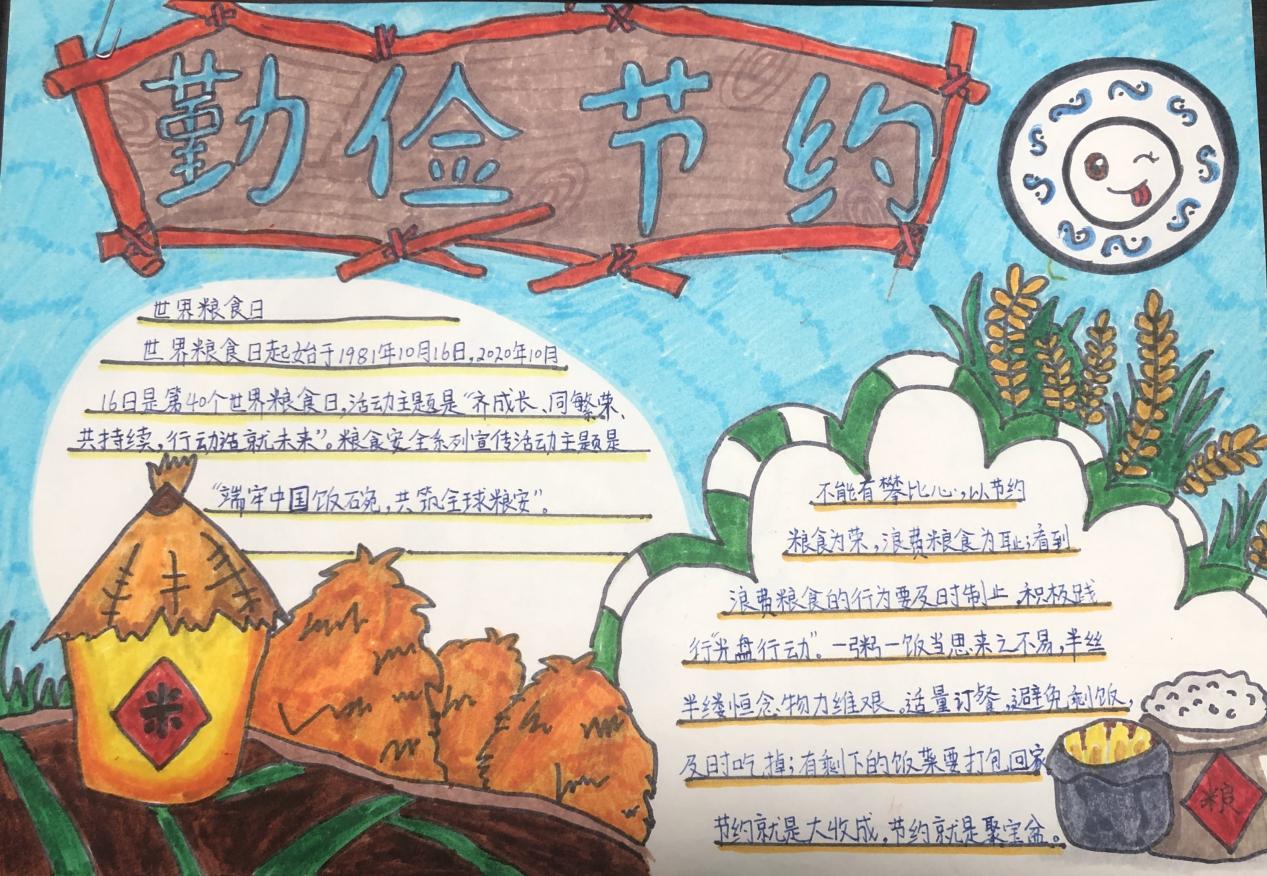 勤俭节约
世界粮食日
世界粮食日起始于1981年10月16日,2020年10月
16日是第40个世界粮食日,活动主题是“齐成长、同繁荣、
共持续,行动造就未来”。粮食安全系列宣传活动主题是
“端牢中国饭碗,共筑全球粮安”。
米
不能有攀比心,以节约
粮食为荣,浪费粮食为耻;看到
浪费粮食的行为要及时制止,积极践
行“光盘行动”。一粥一饭当思来之不易,半丝
半缕恒念物力维艰。适量订餐,避免剩饭,
及时吃掉;有剩下的饭菜要打包回家
节约就是大收成,节约就是聚宝盆。
粮